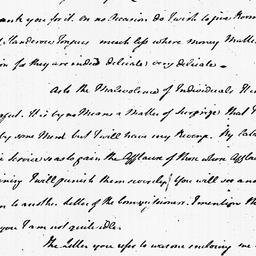 thank you for it. on no occasion do I wish to give Room
much less where money Matte
for they are indeed delicate; very delicate –
As to the Malevolence of Individuals It i
It is by no Means a Matter of Surprize that I
by some Men but I will have my Revenge. My
Service so as to gain the Applause of those whose Applau
I will punish them severely. You will see ano
to another Letter of the Commissioners. I mention th
you I am not quite idle.
The Letter you refer to was one enclosing one